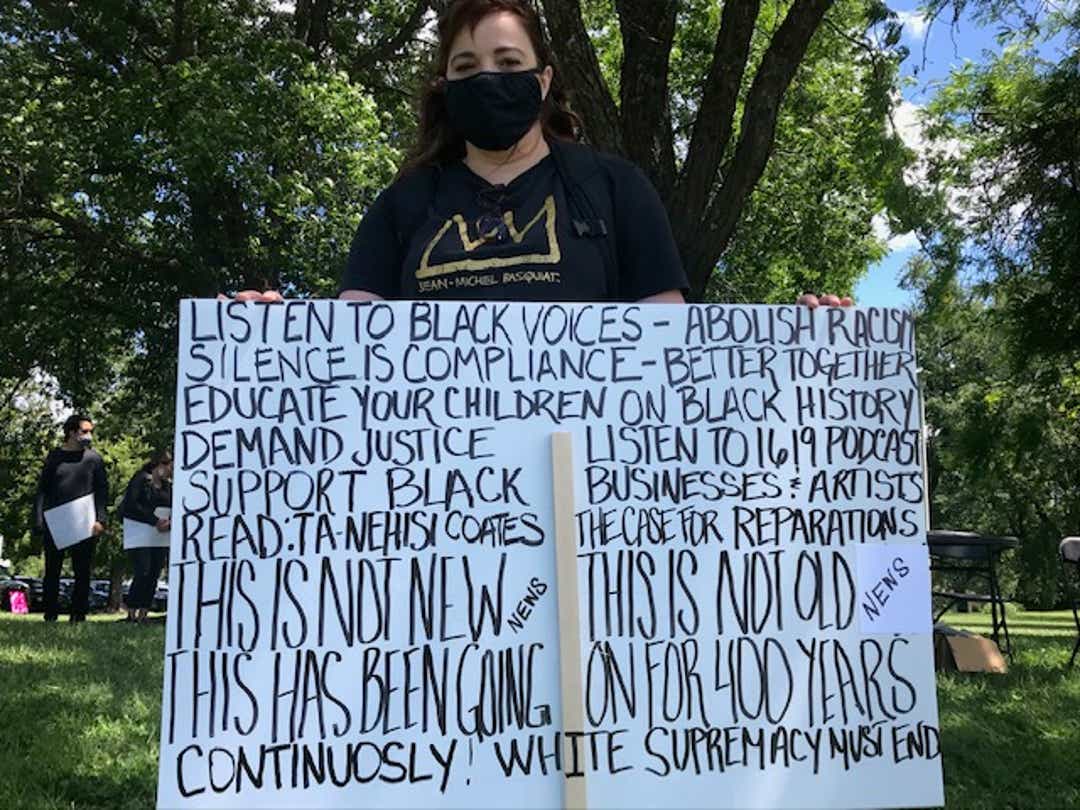 JEAN-MICHEL BASQUIAT
LISTEN TO BLACK VOICES - ABOLISH RACISM
SILENCE IS COMPLIANCE - BETTER TOGETHER
EDUCATE YOUR CHILDREN ON BLACK HISTORY
DEMAND JUSTICE LISTEN TO 1619 PODCAST
SUPPORT BLACK BUSINESSES & ARTISTS
READ: TA-NEHISI COATES THE CASE FOR REPARATIONS
THIS IS NOT NEW NEWS THIS IS NOT OLD NEWS
THIS HAS BEEN GOING ON FOR 400 YEARS
CONTINUOSLY! WHITE SUPREMACY MUST END